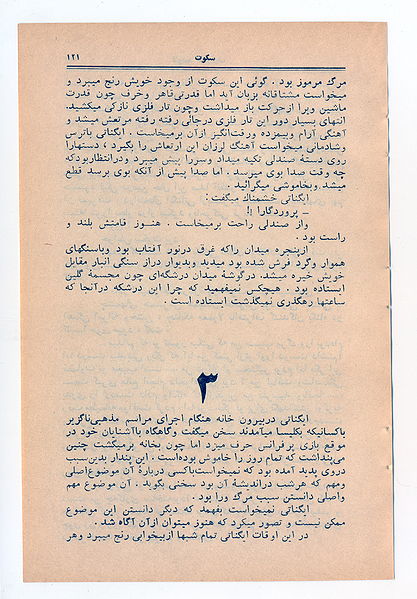 ۱۲۱
سکوت
مرگ مرموز بود . گوئی این سکوت از وجود خویش رنج میبرد و
میخواست مشتاقانه بزبان آید اما قدرتی قاهر وخرف چون قدرت
ماشین ویرا ازحرکت باز میداشت وچون تار فلزی نازکی میکشید.
انتهای بسیار دور این تار فلزی درجائی رفته رفته مرتعش میشد و
آهنگی آرام وبیمزده ورقت‌انگیز ازآن برمیخاست . ایگناتی باترس
وشادمانی میخواست آهنگ لرزان این ارتعاش را بگیرد ، دستهارا
روی دستهٔ صندلی تکیه میداد وسررا پیش میبرد ودرانتظاربودکه
چه وقت صدا بوی میرسد . اما صدا پیش از آنکه بوی برسد قطع
میشد وبخاموشی میگرائید .
ایگناتی خشمناك میگفت :
ـ پروردگارا !!
واز صندلی راحت برمیخاست . هنـوز قامتش بلند و
راست بود .
ازپنجره میدان راکه غرق درنور آفتاب بود وباسنگهای
هموار وگرد فرش شده بود میدید وبدیوار دراز سنگی انبار مقابل
خویش خیره میشد. درگوشهٔ میدان درشکه‌ای چون مجسمهٔ گلین
ایستاده بود . هیچکس نمیفهمید که چرا این درشکه درآنجا که
ساعتها رهگذری نمیگذشت ایستاده است .
۳
ایگناتی دربیرون خانه هنگام اجرای مراسم مذهبی‌ناگزیر
باکسانیکه بکلیسا میآمدند سخن میگفت وگاهگاه باآشنایان خود در
موقع بازی پرفرانس حرف میزد اما چون بخانه برمیگشت چنین
می‌پنداشت که تمام روز را خاموش بوده‌است . این پندار بدین‌سبب
دروی پدید آمده بود که نمیخواست‌باکسی دربارهٔ آن موضوع‌اصلی
ومهم که هرشب دراندیشهٔ آن بود سخنی بگوید . آن موضوع مهم
واصلی دانستن سبب مرگ ورا بود .
ایگناتی نمیخواست بفهمد که دیگر دانستن این موضوع
ممکن نیست و تصور میکرد که هنوز میتوان ازآن آگاه شد .
در این اوقات ایگناتی تمام شبها ازبیخوابی رنج میبرد وهر